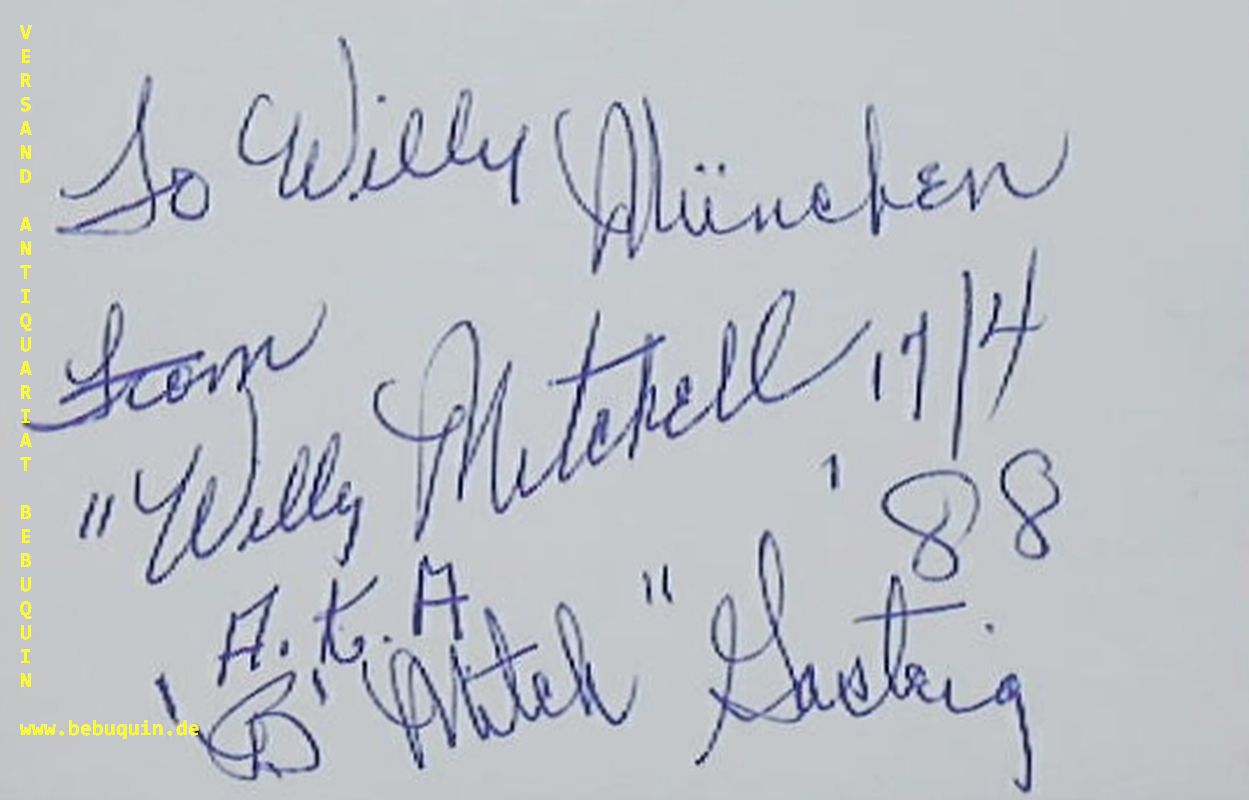 To Willy München
from
"Willy Mitchell 17/4
'88
A.K.A
'B' Mitch" Gasteig
VERSAND ANTIQUARIAT BEBUQUIN
www.bebuquin.de